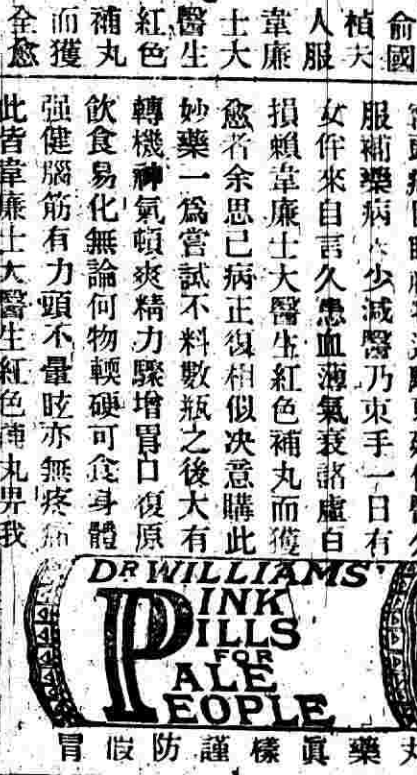 俞國
楨夫
人服
韋廉
士大
醫生
紅色
補丸
而獲
全愈
服補藥病不少減醫乃束手一日有
女伴來自言久患血薄氣衰諸虛百
損賴韋廉士大醫生紅色補丸而獲
愈者余思己病正復相似决意購此
妙藥一爲嘗試不料數瓶之後大有
轉機神氣頓爽精力驟增胃口復原
飲食易化無論何物輭硬可食身體
强健腦筋有力頭不暈眩亦無疼痛
此皆韋廉士大醫生紅色補丸畀我
DR WILLIAMS'
PINK
PILLS
FOR
PALE
PEOPLE
藥眞樣謹防假冒